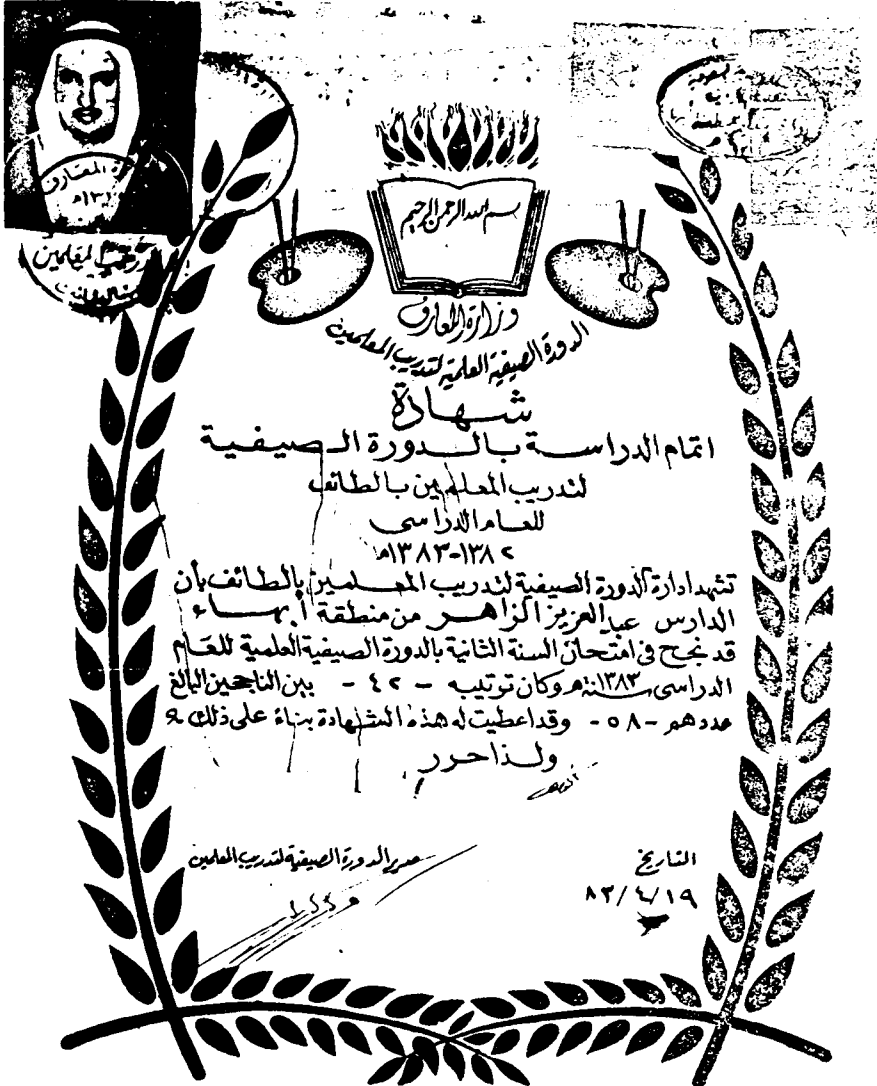 بسم الله الرحمن الرحيم
وزارة المعارف
الدورة الصيفية العلمية لتدريب المعلمين
شهادة
اتمام الدراسة بالدورة الصيفية
لتدريب المعلمين بالطائف
للعام الدراسى
١٣٨٢-١٣٨٣ه
تشهد ادارة الدورة الصيفية لتدريب المعلمين بالطائف بأن
الدارس عبدالعزيز الزاهر من منطقة أبهاء
قد نجح فى امتحان السنة الثانية بالدورة الصيفية العلمية للعام
الدراسى سنة ١٣٨٣ه وكان ترتيبه - ٤٢ - بين الناجحين البالغ
عددهم - ٥٨ - وقد اعطيت له هذه الشهادة بناء على ذلك
ولذا حرر
مدير الدورة الصيفية لتدريب المعلمين
التاريخ
١٩/٤/٨٣